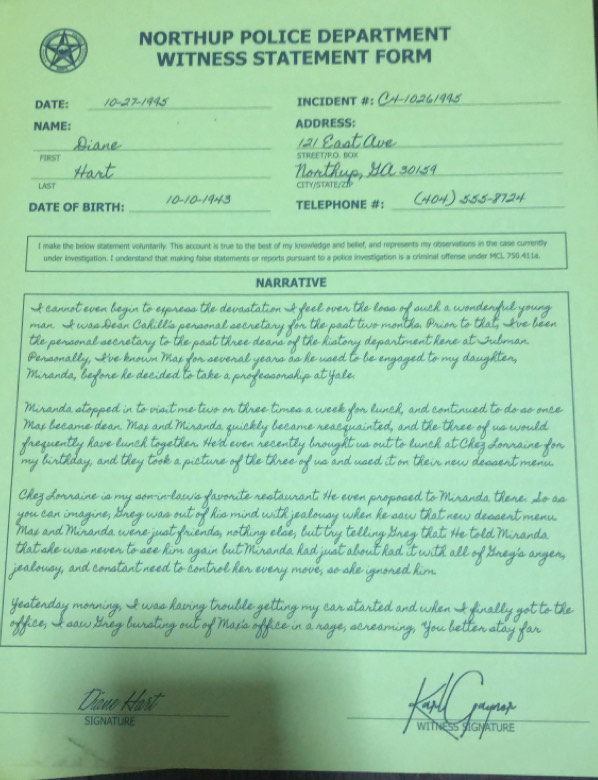 NORTHUP POLICE DEPARTMENT
WITNESS STATEMENT FORM
DATE: 10-27-1995
INCIDENT #: C4-10261995
NAME:
ADDRESS:
Diane
121 East Ave
FIRST
STREET/P.O. BOX
Hart
Northup, GA 30159
LAST
CITY/STATE/ZIP
DATE OF BIRTH: 10-10-1943
TELEPHONE #: (404) 555-8724
I make the below statement voluntarily. This account is true to the best of my knowledge and belief, and represents my observations in the case currently
under investigation. I understand that making false statements or reports pursuant to a police investigation is a criminal offense under MCL 750.411a.
NARRATIVE
I cannot even begin to express the devastation I feel over the loss of such a wonderful young
man. I was Dean Cahill's personal secretary for the past two months. Prior to that, I've been
the personal secretary to the past three deans of the history department here at Tubman.
Personally, I've known Max for several years as he used to be engaged to my daughter,
Miranda, before he decided to take a professorship at Yale.
Miranda stopped in to visit me two or three times a week for lunch, and continued to do so once
Max became dean. Max and Miranda quickly became reacquainted, and the three of us would
frequently have lunch together. He'd even recently brought us out to lunch at Chez Lorraine for
my birthday, and they took a picture of the three of us and used it on their new dessert menu.
Chez Lorraine is my son-in-law's favorite restaurant. He even proposed to Miranda there. So as
you can imagine, Greg was out of his mind with jealousy when he saw that new dessert menu.
Max and Miranda were just friends, nothing else, but try telling Greg that. He told Miranda
that she was never to see him again but Miranda had just about had it with all of Greg's anger,
jealousy, and constant need to control her every move, so she ignored him.
Yesterday morning, I was having trouble getting my car started and when I finally got to the
office, I saw Greg bursting out of Max's office in a rage, screaming, "You better stay far
Diane Hart
Karl Gaynor
SIGNATURE
WITNESS SIGNATURE